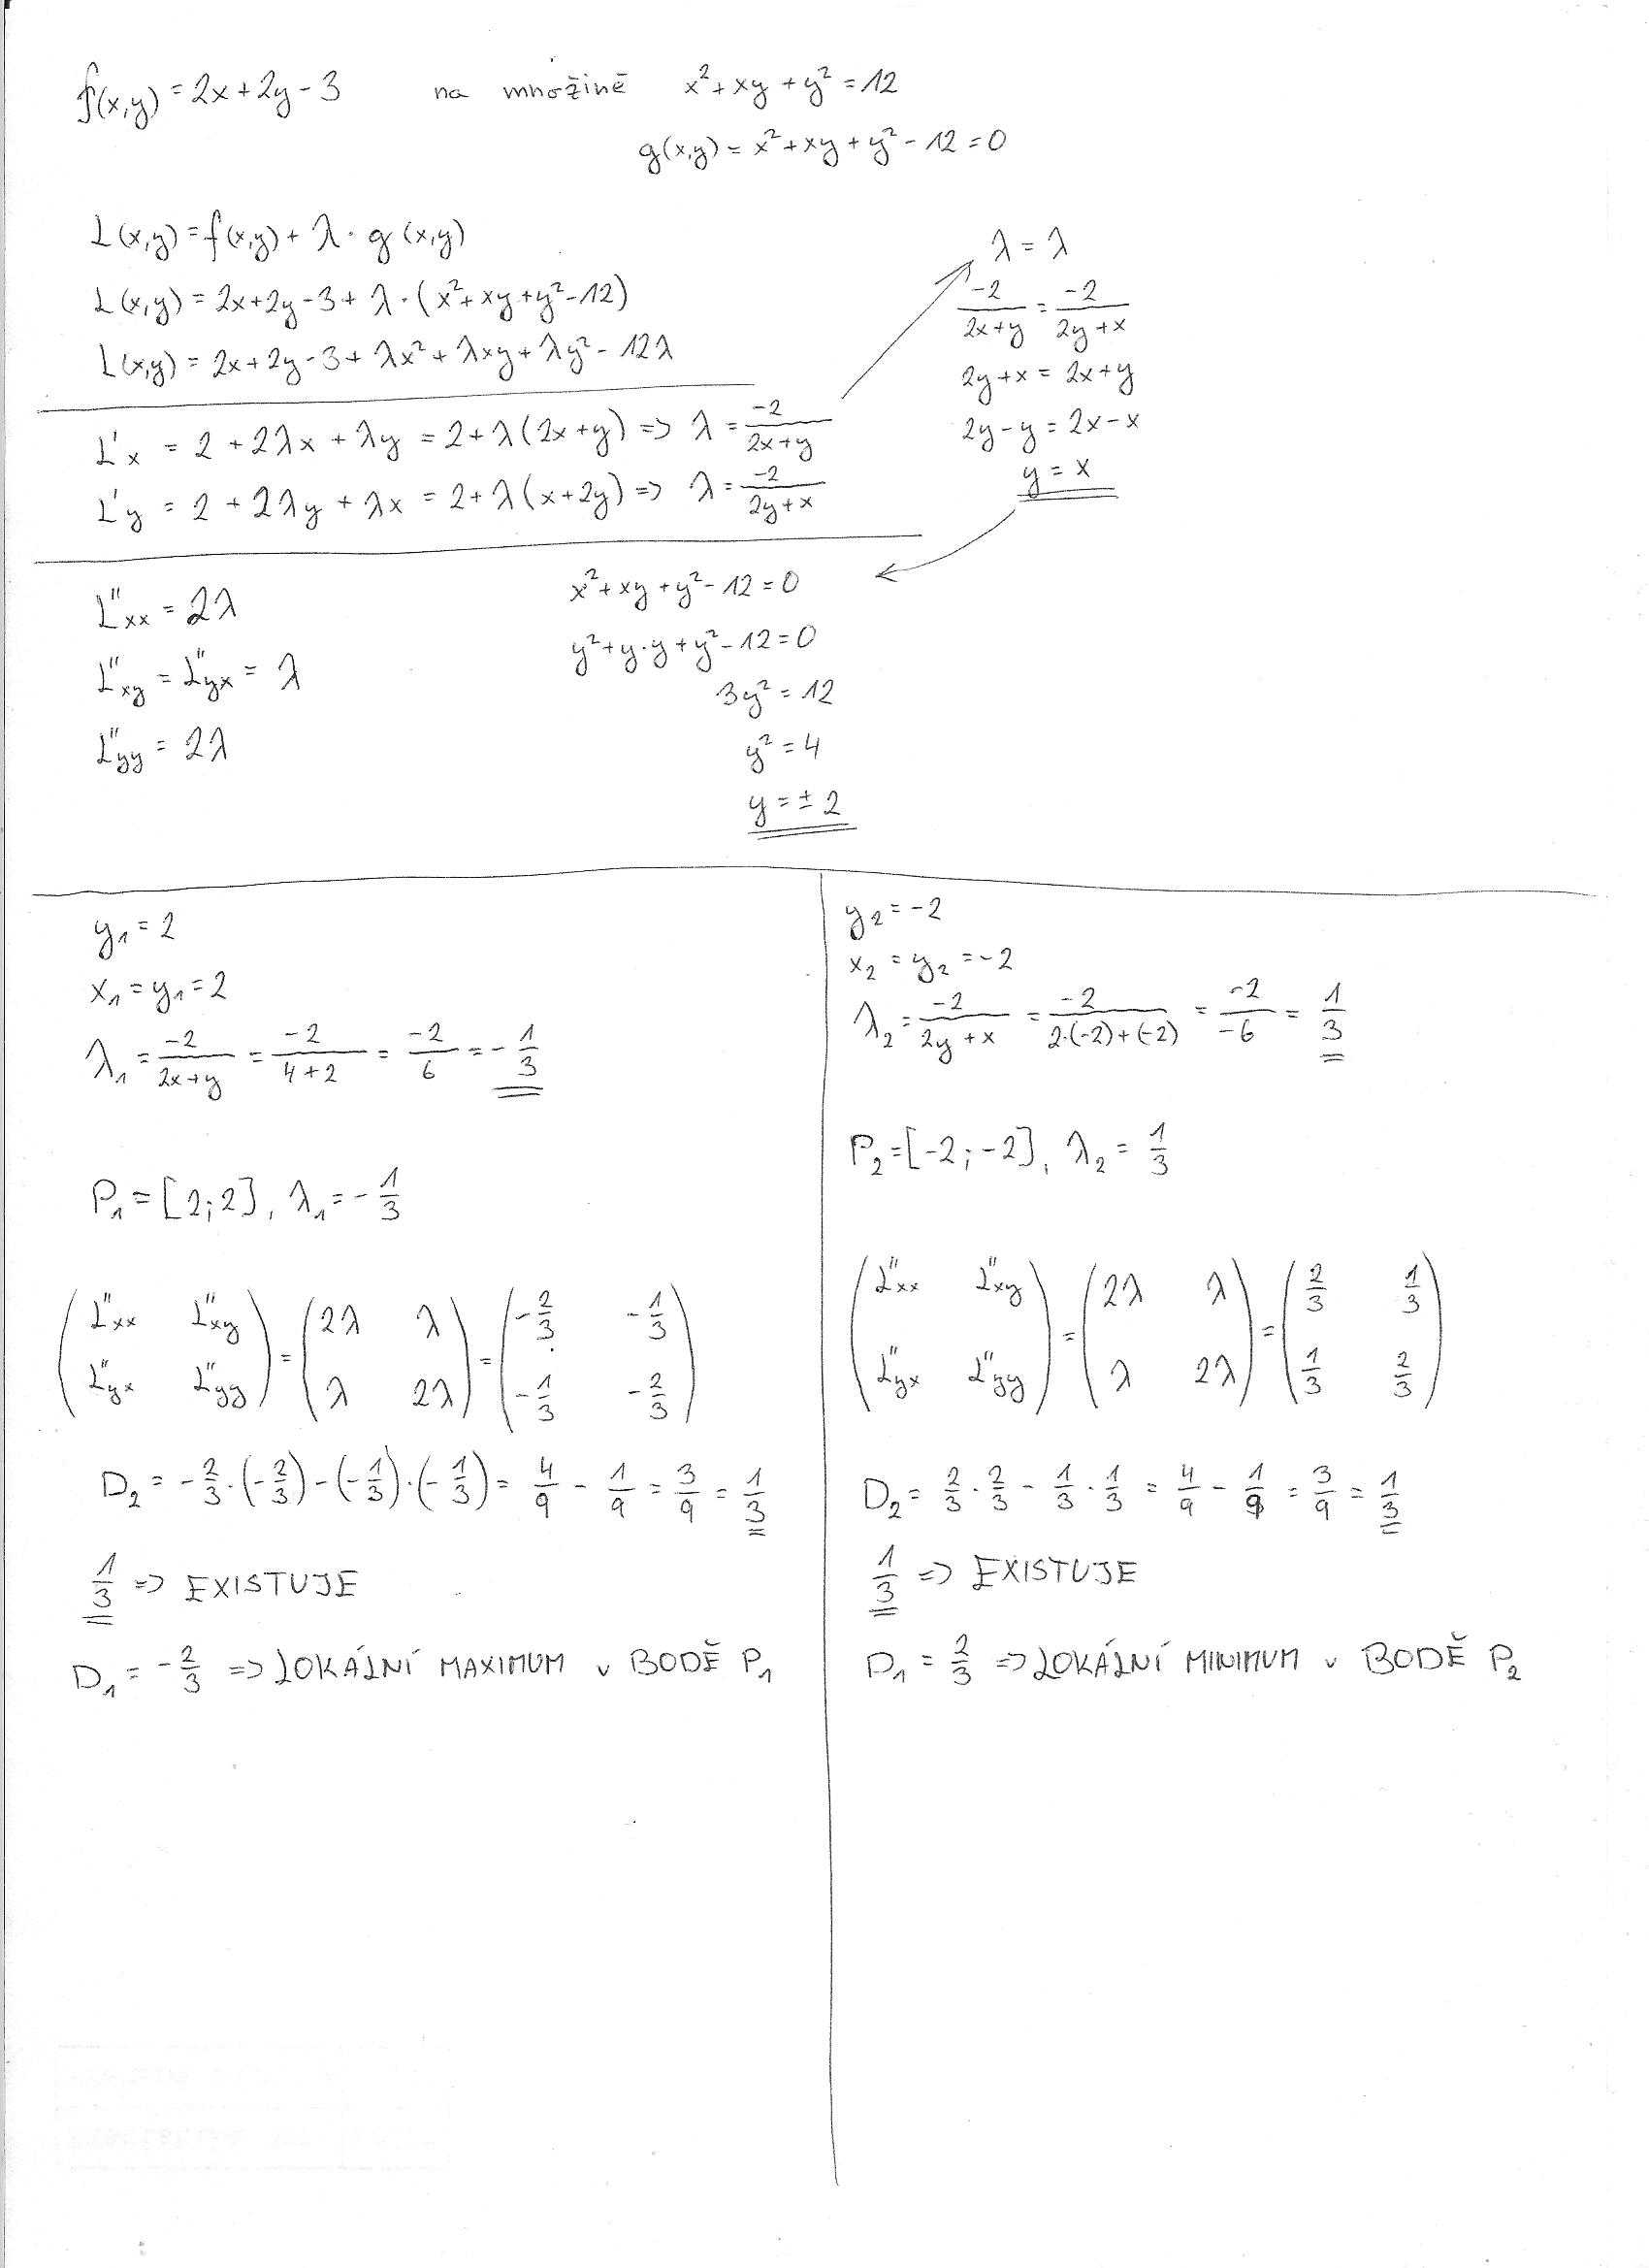 f(x,y) = 2x + 2y - 3 na množině x² + xy + y² = 12
g(x,y) = x² + xy + y² - 12 = 0
L(x,y) = f(x,y) + λ · g(x,y)
L(x,y) = 2x + 2y - 3 + λ · (x² + xy + y² - 12)
L(x,y) = 2x + 2y - 3 + λx² + λxy + λy² - 12λ
L'x = 2 + 2λx + λy = 2 + λ(2x + y) => λ = -2/(2x + y)
L'y = 2 + 2λy + λx = 2 + λ(x + 2y) => λ = -2/(2y + x)
λ = λ
-2/(2x + y) = -2/(2y + x)
2y + x = 2x + y
2y - y = 2x - x
y = x
L''xx = 2λ
L''xy = L''yx = λ
L''yy = 2λ
x² + xy + y² - 12 = 0
y² + y · y + y² - 12 = 0
3y² = 12
y² = 4
y = ± 2
y₁ = 2
x₁ = y₁ = 2
λ₁ = -2/(2x + y) = -2/(4 + 2) = -2/6 = - 1/3
P₁ = [2; 2], λ₁ = - 1/3
(L''xx L''xy) = (2λ λ) = (-2/3 -1/3)
(L''yx L''yy) (λ 2λ) (-1/3 -2/3)
D₂ = - 2/3 · (- 2/3) - (- 1/3) · (- 1/3) = 4/9 - 1/9 = 3/9 = 1/3
1/3 => EXISTUJE
D₁ = - 2/3 => LOKÁLNÍ MAXIMUM v BODĚ P₁
y₂ = -2
x₂ = y₂ = -2
λ₂ = -2/(2y + x) = -2/(2·(-2) + (-2)) = -2/-6 = 1/3
P₂ = [-2; -2], λ₂ = 1/3
(L''xx L''xy) = (2λ λ) = (2/3 1/3)
(L''yx L''yy) (λ 2λ) (1/3 2/3)
D₂ = 2/3 · 2/3 - 1/3 · 1/3 = 4/9 - 1/9 = 3/9 = 1/3
1/3 => EXISTUJE
D₁ = 2/3 => LOKÁLNÍ MINIMUM v BODĚ P₂